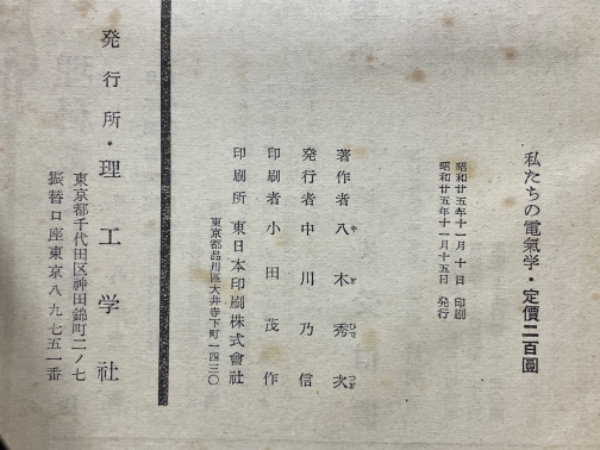 私たちの電氣学・定價二百圓
昭和廿五年十一月十日 印刷
昭和廿五年十一月十五日 発行
著作者 八木秀次
やぎひでつぐ
発行者 中川乃信
印刷者 小田茂作
印刷所 東日本印刷株式會社
東京都品川區大井寺下町一四三〇
発行所・理工学社
東京都千代田区神田錦町二ノ七
振替口座東京八九七五一番